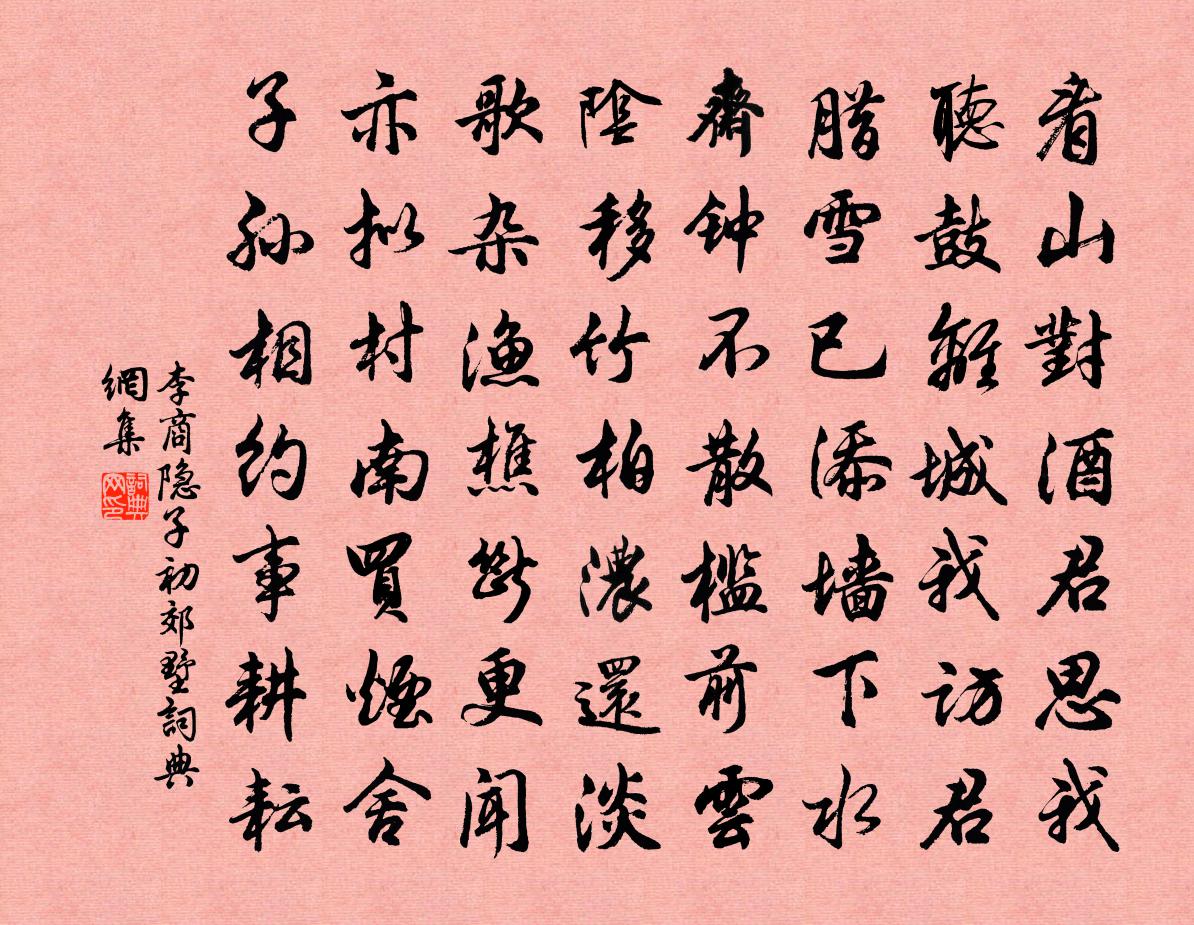 看山對酒君思我
聽鼓離城我訪君
腊雪已添墙下水
齋钟不散檻前雲
陰移竹柏濃還淡
歌杂渔樵斷更闻
亦拟村南買煙舍
子孫相約事耕耘
李商隐子初郊墅詞典
網集
詞典网印